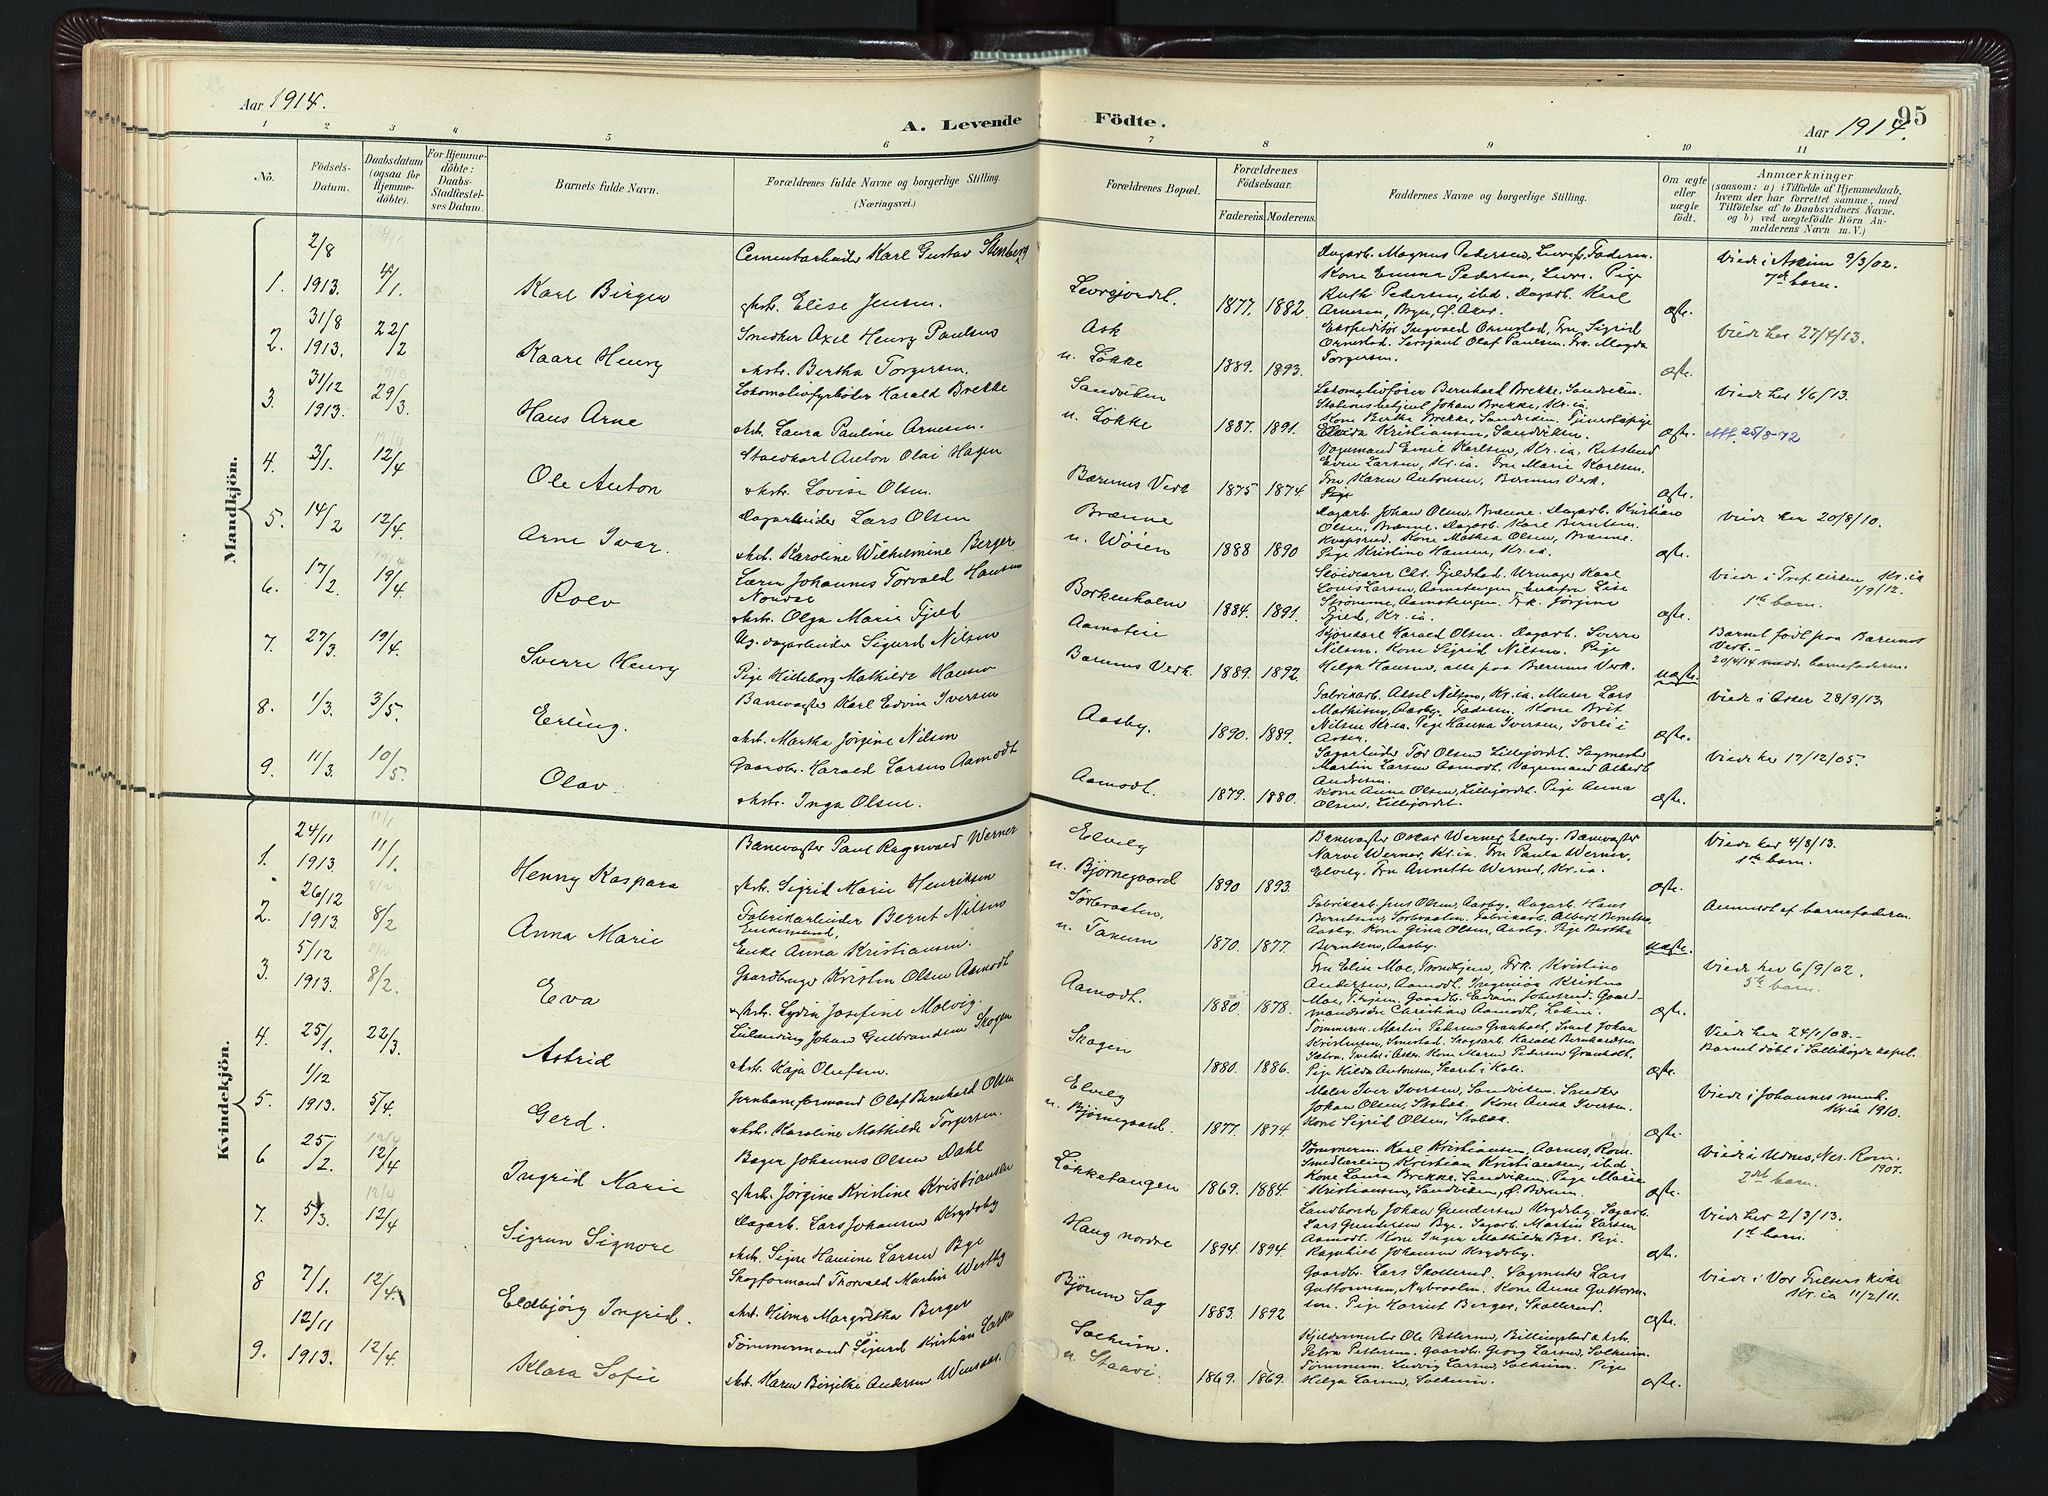 Aar 1914.
A. Levende Födte.
Aar 1914.
95
1 2 3 4 5 6 7 8 9 10 11
No.
Födsels-
Datum.
Daabsdatum
(ogsaa for
Hjemme-
döbte).
For Hjemme-
döbte:
Daabs-
Stadfæstel-
ses Datum.
Barnets fulde Navn.
Forældrenes fulde Navne og borgerlige Stilling.
(Næringsvei.)
Forældrenes Bopæl.
Forældrenes
Födselsaar.
Faderens. Moderens.
Faddernes Navne og borgerlige Stilling.
Om ægte
eller
uægte
födt.
Anmærkninger
(saasom: a) i Tilfælde af Hjemmedaab,
hvem der har forrettet samme, med
Tilföielse af to Daabsvidners Navne,
og b) ved uægtefödte Börn An-
melderens Navn m. V.)
Mandkjön.
1. 2/8 1913. 4/1.
Karl Birger
Cementarbeider Karl Gustav Stenberg
Hstr. Elise Jensen.
1877. 1882.
Dagarb. Magnus Pedersen,
Kone Emma Pedersen, Pige
Ruth Pedersen, ibid. Dagarb. Karl
Arnesen, Byn, Ø. Aker.
ægte.
Viede i Askim 9/3/02.
7de barn.
2. 31/8 1913. 22/2
Kaare Henry
Smedker Axel Henry Paulsen
Hstr. Bertha Torgersen.
Ask
u. Løkke
1889. 1893.
Ekspeditør Ingvald Ormstad, Fru Sigrid
Ormstad. Sersjant Olaf Paulsen. Frk. Magda
Torgersen.
ægte.
Viede her 27/4/13.
3. 31/12 1913. 29/3.
Hans Arne
Lokomotivfyrbøder Harald Brekke
Hstr. Laura Pauline Arnesen.
Sandviken
u. Løkke
1887. 1891.
Lokomotivfører Bernhard Brekke, Sandviken.
Stationsbetjent Johan Brekke, Kr.ia.
Kone Bertha Brekke, Sandviken. Tjenestepige
Kristiansen, Sandviken.
ægte.
Viede her 4/6/13.
Att. 25/8-72
4. 3/1. 12/4
Ole Anton
Staldkarl Anton Olai Hagen
Hstr. Lovise Olsen.
Bærums Verk
1875 1874
Vognmand Emil Karlsen, Kr.ia.
Larsen, Kr.ia. Fru Marie Karlsen.
Fru Karen Antonsen, Bærums Verk.
Pige
ægte.
5. 14/2 12/4.
Arne Ivar.
Dagarbeider Lars Olsen
Hstr. Karoline Wilhelmine Berger.
Brænne
u. Wøien
1888 1890
Dagarb. Johan Olsen, Brænne. Dagarb. Kristian
Olsen, Brænne. Dagarb. Karl Berntsen.
Kone Mathea Olsen, Brænne.
Pige Kristine Hansen, Kr.ia.
ægte.
Viede her 20/8/10.
6. 17/2. 19/4.
Rolv
Lærer Johannes Torvald Hansen
Hstr. Olga Marie Fjeld
Borkenholm
1884. 1891.
Chr. Fjeldstad. Urmager Karl
Louis Larsen, Enkefru Lise
Strømme, Frk. Jørgine
Fjeld, Kr.ia.
ægte.
Viede i Tref.kirken Kr.ia
1/9/12.
1ste barn.
7. 27/3. 19/4.
Sverre Henry
Ug. dagarbeider Sigurd Nilsen
Pige Hildeborg Mathilde Hansen
Bærums Verk.
1889. 1892.
Harald Olsen. Dagarb. Sverre
Nilsen. Kone Sigrid Nilsen. Pige
Helga Hansen, alle paa Bærums Verk.
uægte.
Barnet født paa Bærums
Verk.
20/4/14 medd. barnefaderen.
8. 1/3. 3/5.
Erling.
Banevogter Karl Edvin Iversen
Hstr. Martha Jørgine Nilsen
Aasby.
1890. 1889.
Fabrikarb. Aksel Nilsen, Kr.ia. Murer Lars
Mathisen, Aasby. Faderen. Kone Brit
Nilsen Kr.ia. Pige Hanna Iversen, Sorli i
Asker.
ægte.
Viede i Asker 28/9/13.
9. 11/3. 10/5.
Olav
Gaardbr. Harald Larsen Aamodt
Hstr. Inga Olsen.
Aamodt.
1879. 1880.
Sagarbeider Tor Olsen Lillejordet. Sagmester
Martin Larsen Aamodt. Vognmand Albert
Andersen.
Kone Anne Olsen, Lillejordet. Pige Anna
Olsen, Lillejordet.
ægte.
Viede her 17/12/05.
Kvindekjön.
1. 24/11 1913. 11/1.
Henny Kaspara
Banevogter Paul Ragnvald Werner
Hstr. Sigrid Marie Henriksen
Elvely
u. Bjørnegaard
1890 1893.
Banevogter Oskar Werner, Elvely. Banevogter
Narvi Werner, Kr.ia. Fru Paula Werner,
Elvely. Fru Annette Werner, Kr.ia.
ægte.
Viede her 4/8/13.
1ste barn.
2. 26/12 1913. 8/2
Anna Marie
Fabrikarbeider Bernt Nilsen
Enkemand,
Enke Anna Kristiansen.
Sørbraaten,
u. Tanum
1870. 1877.
Fabrikarb. Jens Olsen, Aasby. Dagarb. Hans
Berntsen, Sørbraaten. Fabrikarb. Albert Berntsen
Aasby. Kone Gina Olsen, Aasby. Pige Bertha
Berntsen, Aasby.
uægte.
Anmeldt af barnefaderen.
3. 5/12 1913. 8/2.
Eva
Gaardbruger Kristen Olsen Aamodt
Hstr. Lydia Josefine Malvig.
Aamodt.
1880. 1878.
Fru Elin Moe, Trondhjem, Frk. Kristine
Andersen, Aamodt. Ingeniør Kristen
Moe, T.hjem. Gaardb. Edvin Johnsrud. Gaard-
mandssøn Christian Aamodt,
ægte.
Viede her 6/9/02.
5te barn.
4. 25/1. 22/3.
Astrid
Leilending Johan Gulbrandsen Skogen
Hstr. Kaja Olufsen.
Skogen
1880. 1886.
Tømmerm. Martin Pedersen Granholt, Smed Johan
Kristiansen, Skogarb. Harald Bernhardsen
Sætra, Tveter i Asker. Kone Maren Pedersen Granholt.
Pige Hilda Antonsen, Skaret i Hole.
ægte.
Viede her 24/1/08.
Barnet døbt i Sollihøgda kapel.
5. 1/12 1913. 5/4.
Gerd.
Jernbaneformand Olaf Bernhard Olsen
Hstr. Karoline Mathilde Torgersen.
Elvely
u. Bjørnegaard.
1877. 1874.
Maler Iver Iversen, Sandviken. Smedker
Johan Olsen, Stabæk. Kone Anna Iversen.
Kone Sigrid Olsen, Stabæk.
ægte.
Viede i Johannes menk.
Kr.ia 1910.
6 25/2. 12/4
Ingrid Marie
Bager Johannes Olsen Dahl
Hstr. Jørgine Kristine Kristiansen
Løkketangen
1869. 1884.
Tømmerm. Karl Kristiansen, Aarnes, Rom.
Smedlærling Kristian Kristiansen, ibid
Kone Laura Brekke, Sandviken. Pige Marie
Kristiansen, Sandviken, Ø. Bærum.
ægte.
Viede i Udnes, Nes. Rom.
1907.
2det barn.
7. 5/3. 12/4
Sigrun Signore
Dagarb. Lars Johansen Krydsby
Hstr. Signe Hanine Larsen Bye
Haug nordre
1894. 1894.
Landhandl. Johan Gundersen Krydsby. Sagarb.
Lars Gundersen Bye. Sagarb. Martin Larsen
Aamodt. Kone Inga Mathilde Bye. Pige
Ragnhild Johansen Krydsby.
ægte.
Viede her 2/3/13.
1st barn.
8 7/1. 12/4.
Eldbjørg Ingrid.
Skogformand Thorvald Martin Westby
Hstr. Hilma Margretha Berger
Bjørum Sag
1883. 1892
Gaardbr. Lars Skollerud. Sagmester Lars
Guttormsen, Nybraaten. Kone Anne Guttorm-
sen. Pige Harriet Berger, Skollerud.
ægte.
Viede i Vor Frelsers kirke
Kr.ia 11/2/11.
9. 12/11 1913. 12/4.
Klara Sofie
Tømmermand Sigurd Kristian Larsen
Hstr. Karen Birgitte Andersen
Solheim.
u. Staavi.
1869. 1869.
Kjeldermester Ole Pettersen, Billingstad & Hstr.
Petra Pettersen. Gaardb. Georg Larsen, Solheim.
Tømmerm. Ludvig Larsen, Solheim. Pige
Helga Larsen, Solheim.
ægte.